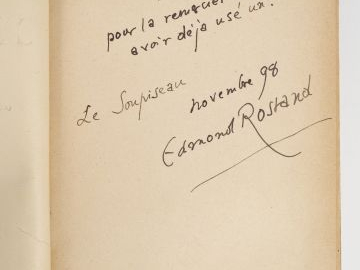 pour la remercier
avoir déjà usé un.
Le Soupiseau
novembre 98
Edmond Rostand